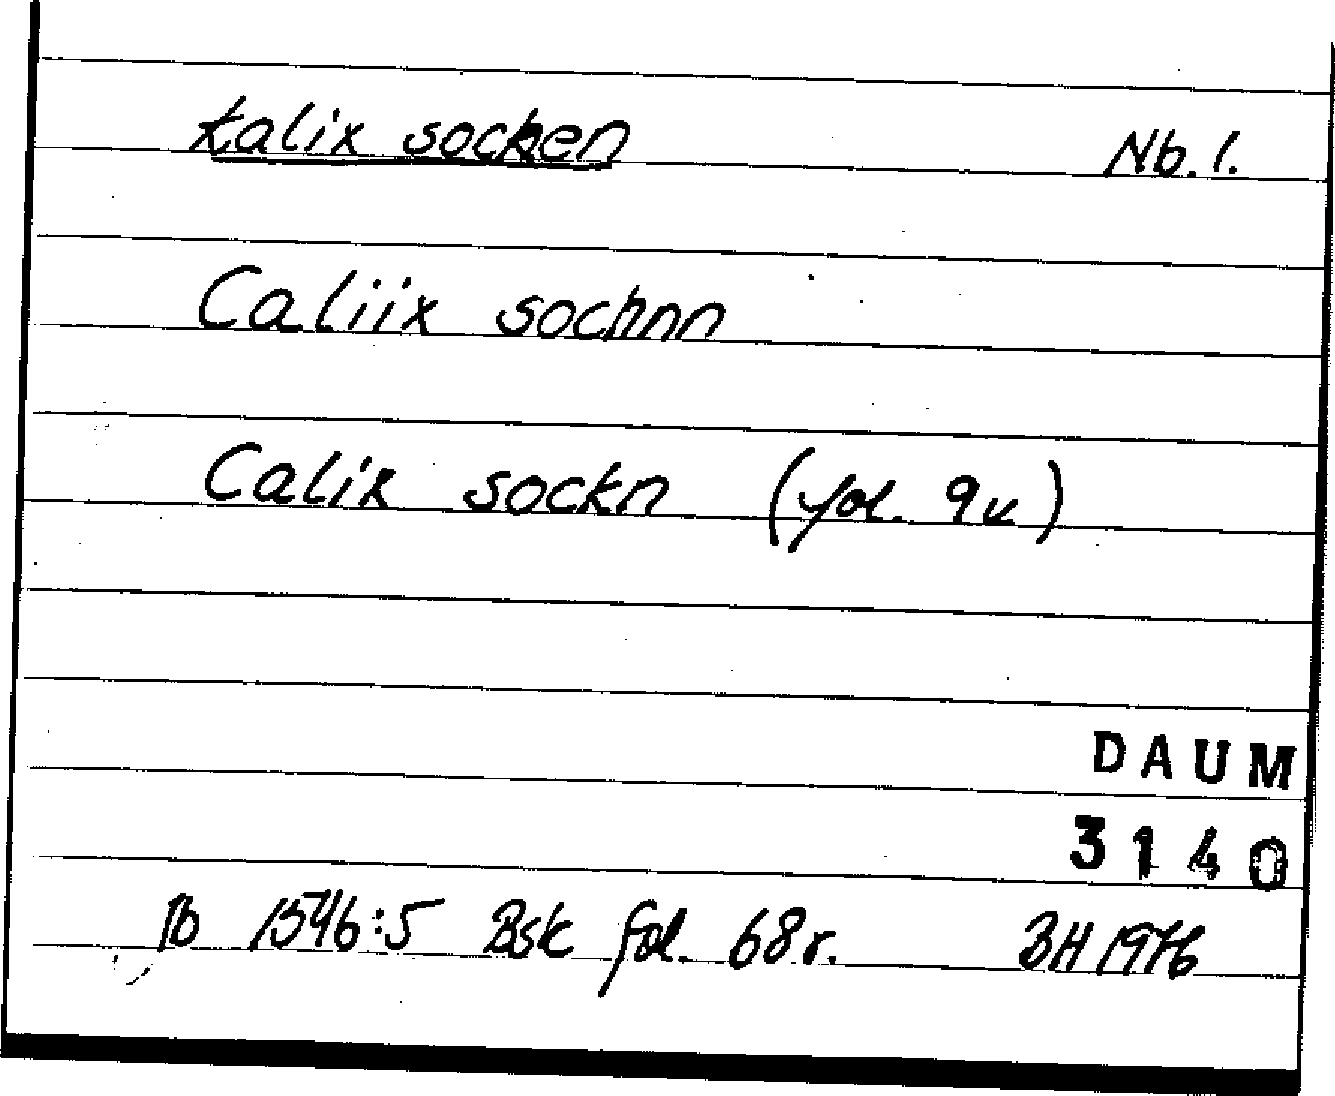 Kalix socken Nb. l.
Caliix sochnn
Calix sockn (fol. 9v)
DAUM
3140
Jb 1546:5 Bsk fol. 68r. BH 1976